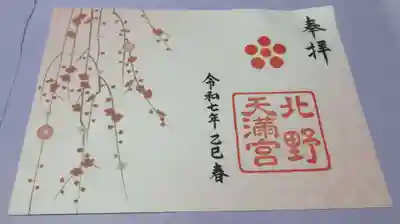 奉拝
北野
天満宮
令和七年乙巳春